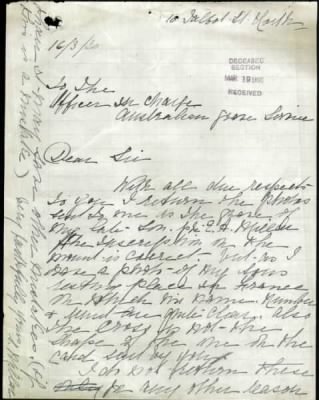 10 Talbot St. North
16/3/20
DECEASED
SECTION
MAR 19 1920
RECEIVED
To The
Officer in Charge
Australian Grave Service
Dear Sir
With all due respects
to you I return the photos
sent to me is the grave of
my late Son.
the Inscription on the
mount is correct. but as I
have a photo of my sons
resting place in France
on which his Name. Number
& Unit are quite clear. also
the Cross is not the
shape of the one in the
card sent by you.
I do not return these
for any other reason